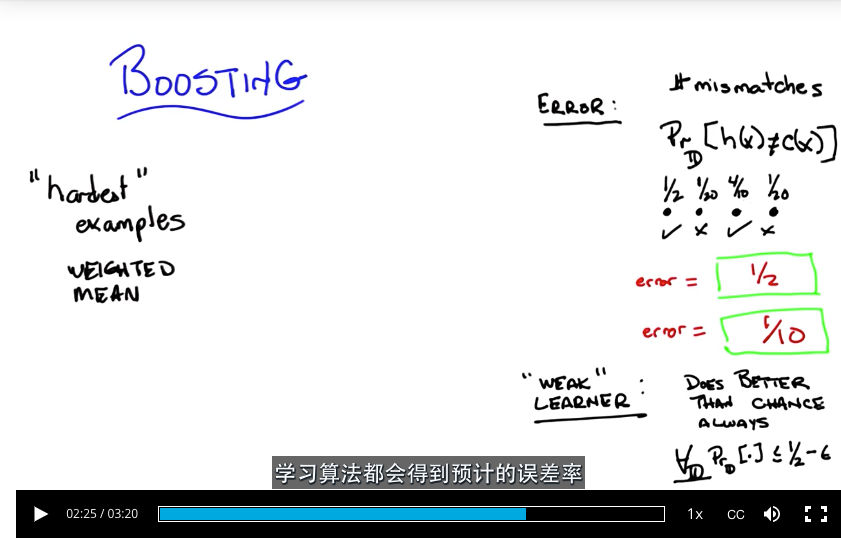 BOOSTING
"hardest"
examples
WEIGHTED
MEAN
ERROR:
# mismatches
Pr_D [h(x)≠c(x)]
1/2 1/20 4/10 1/20
✓ x ✓ x
error = 1/2
error = 1/10
"WEAK"
LEARNER :
DOES BETTER
THAN CHANCE
ALWAYS
∀_D Pr_D [·] ≤ 1/2 - ε
学习算法都会得到预计的误差率
02:25 / 03:20
1x
CC